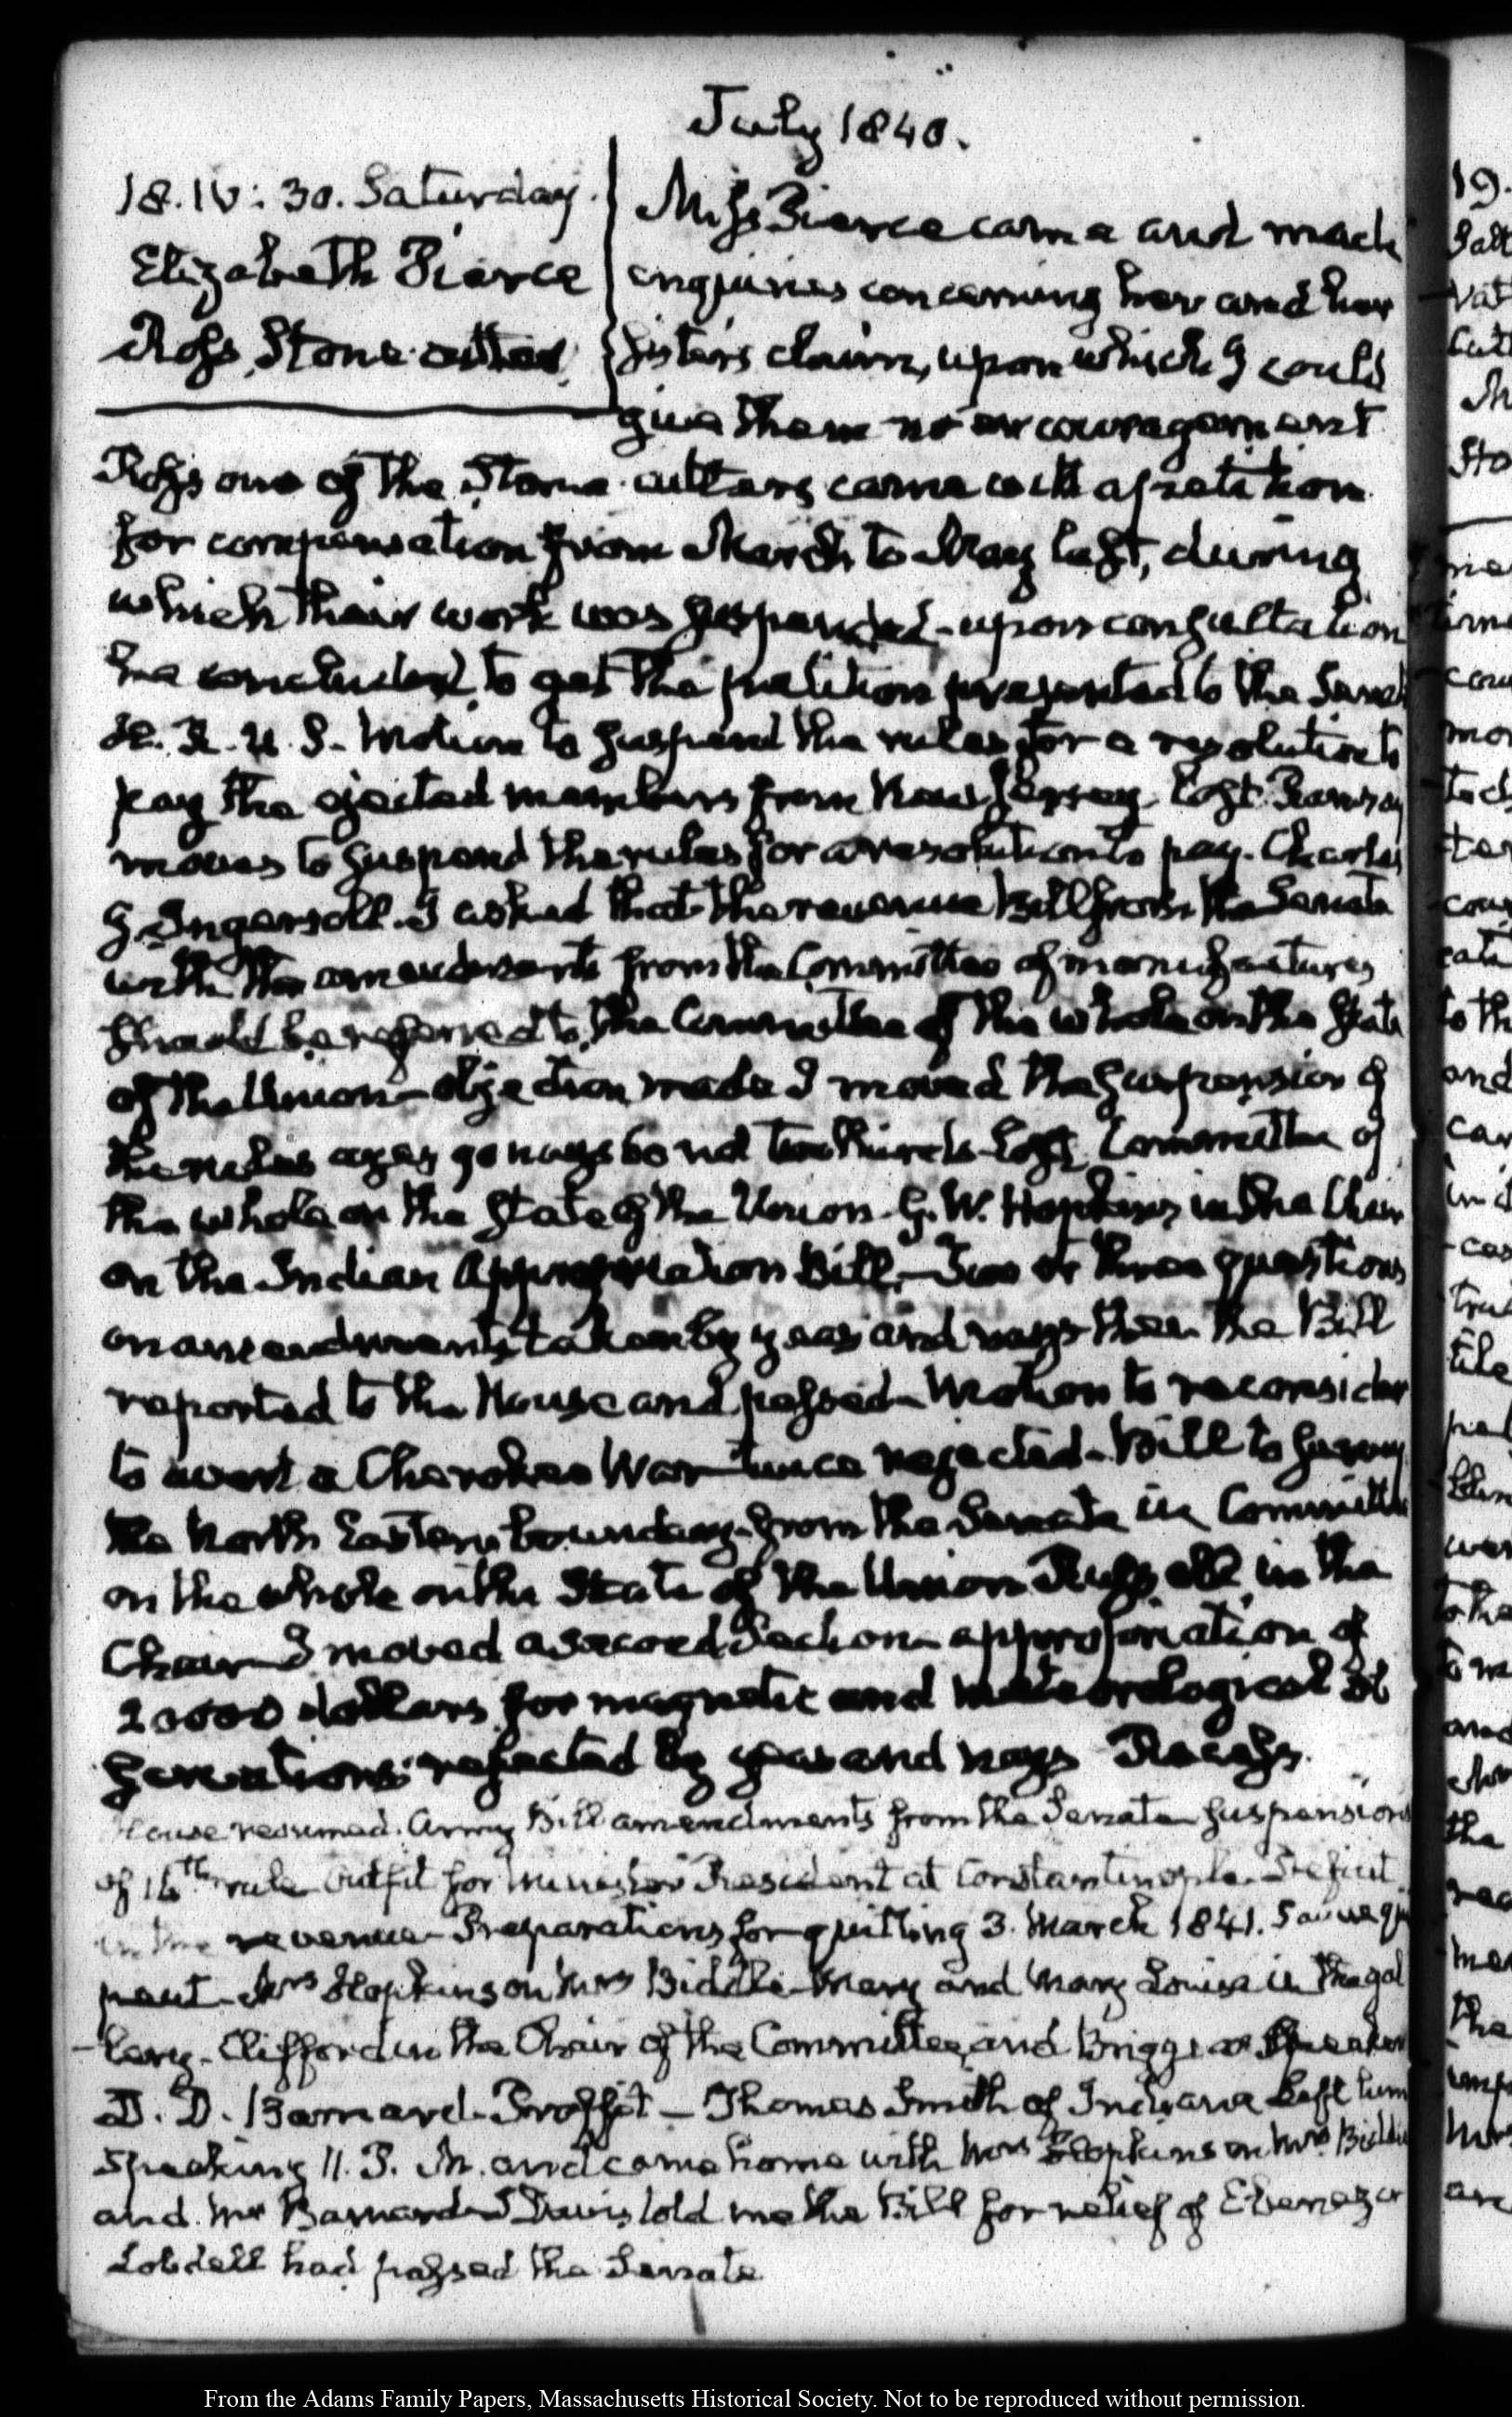 July 1840.
18. IV: 30. Saturday.
Elizabeth Pierce
Ross, Stone cutter
Miss Pierce came and made
enquiries concerning her and her
sisters claim, upon which I could
give them no encouragement
Ross one of the Stone cutters came with a petition
for compensation from March to May last, during
which their work was suspended - upon consultation
he concluded to get the petition presented to the Senate
H. R. U. S. Motion to suspend the rules for a resolution to
pay the ejected members from New Jersey. lost. Ramsay
moves to suspend the rules for a resolution to pay Charles
J. Ingersoll. I asked that the revenue Bill from the Senate
with the amendments from the Committee of manufactures
should be referred to the Committee of the whole on the State
of the Union - objection made I moved the suspension of
the rules ayes 90 noes 60 not two thirds - lost. Committee of
the whole on the State of the Union. G. W. Hopkins in the Chair
on the Indian Appropriation Bill. Two or three questions
on amendments taken by yeas and nays then the Bill
reported to the House and passed - Motion to reconsider
to avert a Cherokee War - twice rejected - Bill to survey
the North Eastern boundary from the Senate in Committee
on the whole on the State of the Union Russell in the
Chair - I moved a second Section - appropriation of
20000 dollars for magnetic and meteorological ob
servations rejected by yeas and nays Recess.
House resumed. Army Bill amendments from the Senate suspension
of 16th. rule Outfit for Minister Resident at Constantinople. Deficit
in the revenue - Preparations for quitting 3. March 1841. Sauve qui
peut - Mrs Hopkinson Mrs Biddle Mary and Mary Louisa in the gal
-lery. Clifford in the Chair of the Committee, and Briggs as Speaker
D. D. Barnard - Proffit - Thomas Smith of Indiana Left him
speaking 11. P. M. and came home with Mrs Hopkinson Mrs Biddle
and Mr Barnard - J Davis told me the Bill for relief of Ebenezer
Lobdell had passed the Senate
From the Adams Family Papers, Massachusetts Historical Society. Not to be reproduced without permission.